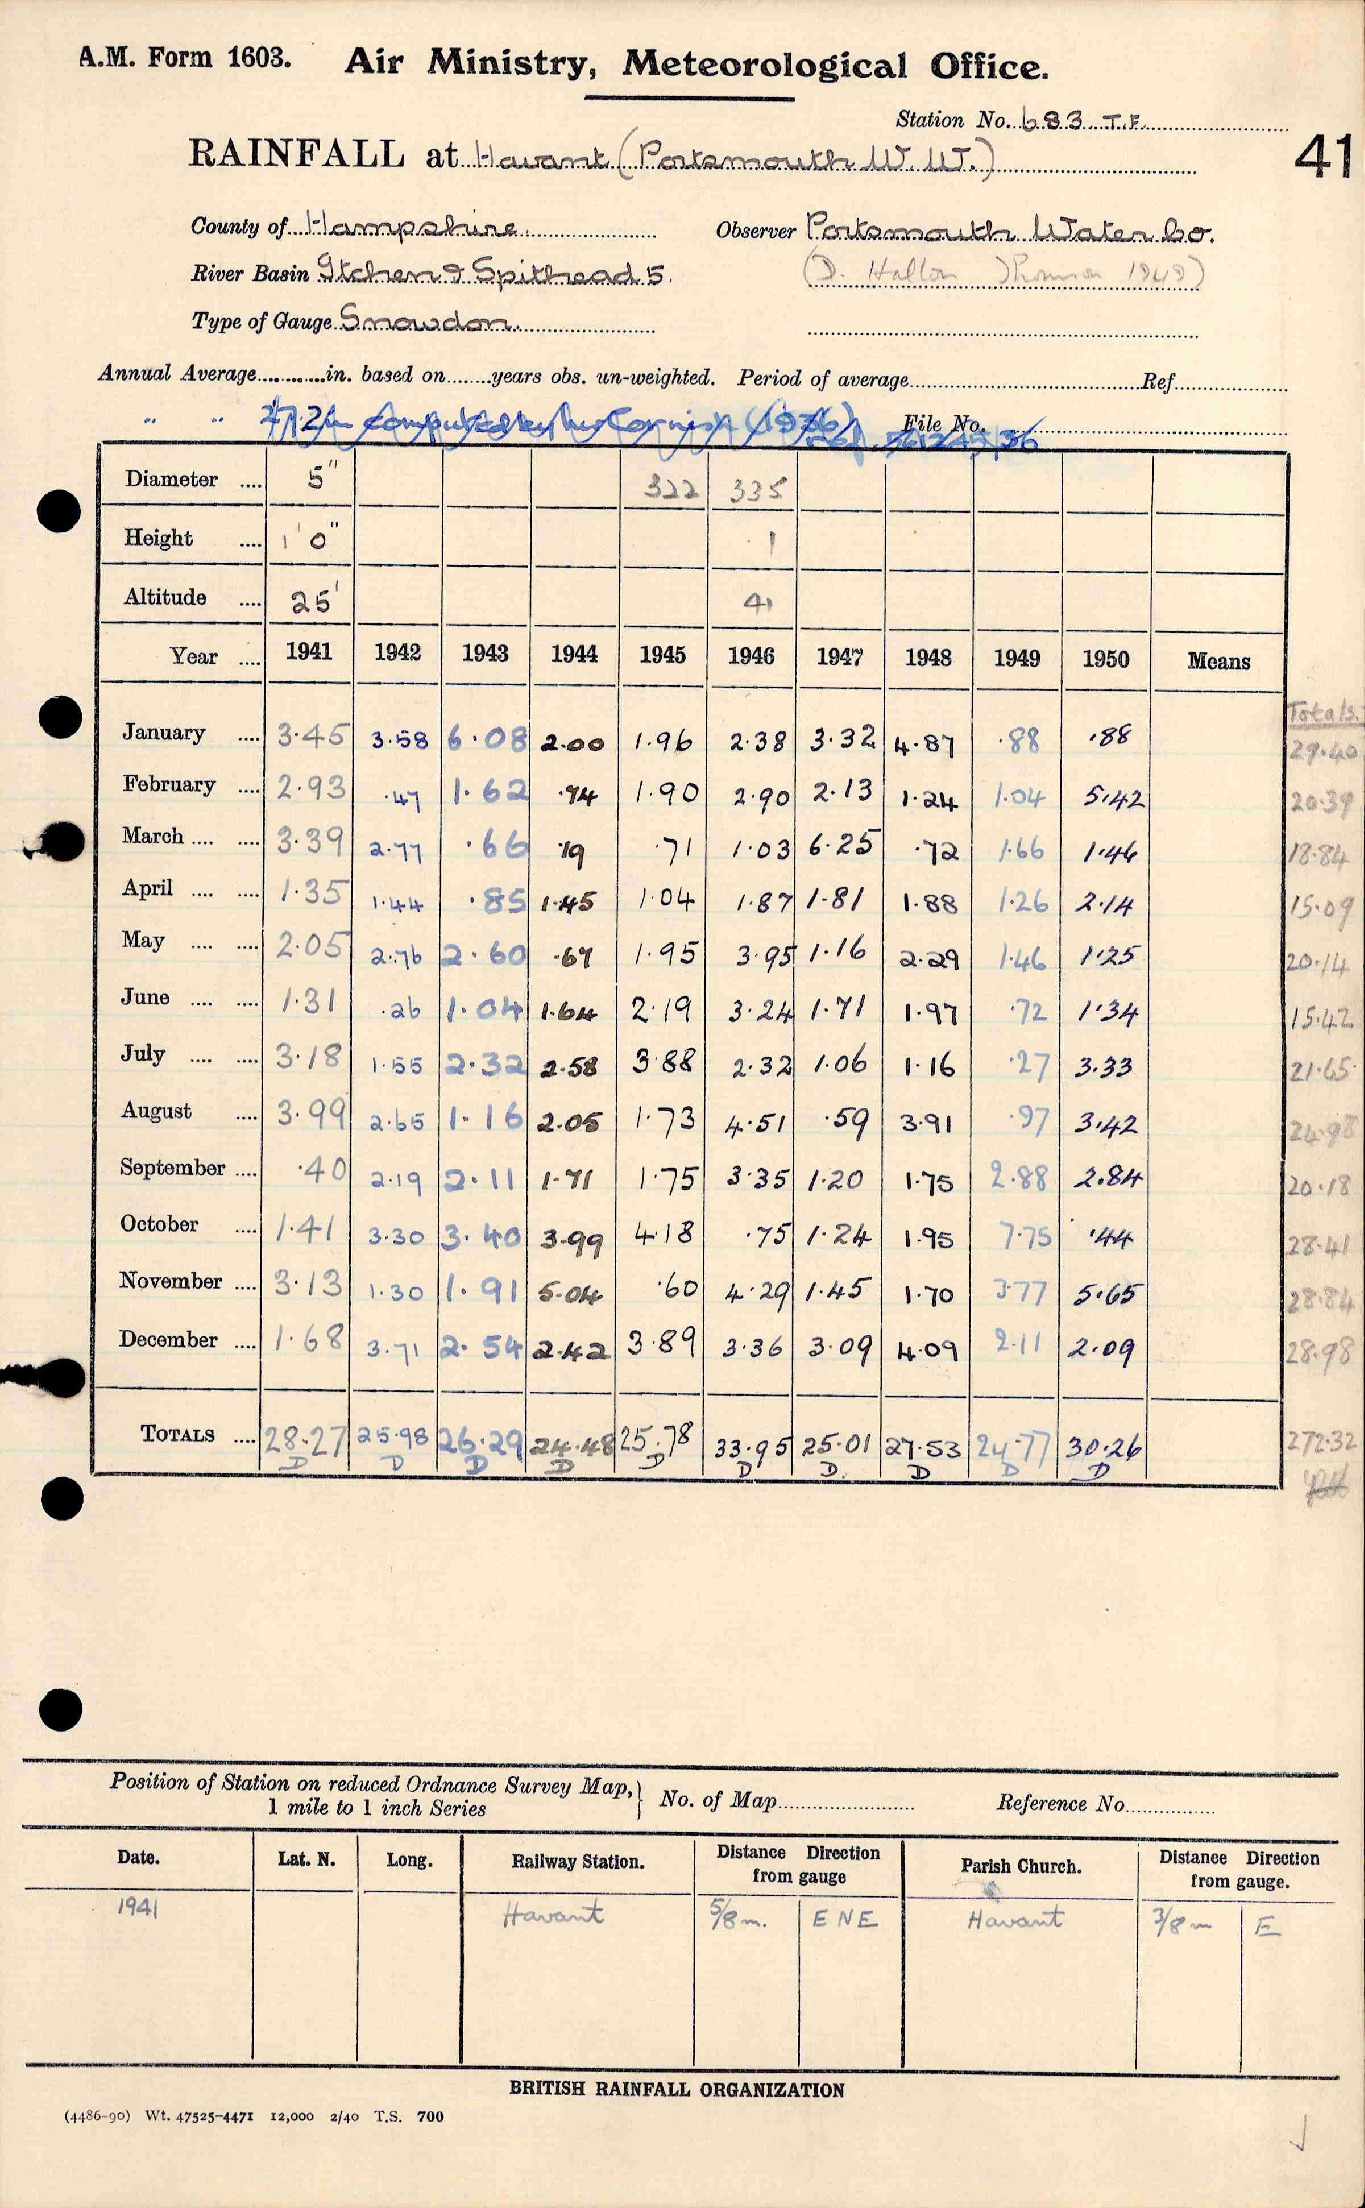 A.M. Form 1603. Air Ministry, Meteorological Office.
Station No. 683 T.F.
RAINFALL at Havant (Portsmouth W. W.) 41
County of Hampshire. Observer Portsmouth Water Co.
River Basin Itchen & Spithead 5. (D. Halton Thomson 1949)
Type of Gauge Snowdon.
Annual Average............in. based on........years obs. un-weighted. Period of average................Ref................
„ „ File No.
Diameter .... 5" 322 335
Height .... 1' 0" 1
Altitude .... 25' 41
Year .... 1941 1942 1943 1944 1945 1946 1947 1948 1949 1950 Means
Totals.
January .... 3.45 3.58 6.08 2.00 1.96 2.38 3.32 4.87 .88 .88 29.40
February .... 2.93 .47 1.62 .74 1.90 2.90 2.13 1.24 1.04 5.42 20.39
March .... .... 3.39 2.77 .66 .19 .71 1.03 6.25 .72 1.66 1.46 18.84
April .... .... 1.35 1.44 .85 1.45 1.04 1.87 1.81 1.88 1.26 2.14 15.09
May .... .... 2.05 2.76 2.60 .67 1.95 3.95 1.16 2.29 1.46 1.25 20.14
June .... .... 1.31 .26 1.04 1.64 2.19 3.24 1.71 1.97 .72 1.34 15.42
July .... .... 3.18 1.55 2.32 2.58 3.88 2.32 1.06 1.16 .27 3.33 21.65
August .... 3.99 2.65 1.16 2.05 1.73 4.51 .59 3.91 .97 3.42 24.98
September .... .40 2.19 2.11 1.71 1.75 3.35 1.20 1.75 2.88 2.84 20.18
October .... 1.41 3.30 3.40 3.99 4.18 .75 1.24 1.95 7.75 .44 28.41
November .... 3.13 1.30 1.91 5.04 .60 4.29 1.45 1.70 3.77 5.65 28.84
December .... 1.68 3.71 2.54 2.42 3.89 3.36 3.09 4.09 2.11 2.09 28.98
TOTALS .... 28.27 25.98 26.29 24.48 25.78 33.95 25.01 27.53 24.77 30.26 272.32
D D D D D D D. D D D
Position of Station on reduced Ordnance Survey Map, } No. of Map................ Reference No................
1 mile to 1 inch Series
Date. Lat. N. Long. Railway Station. Distance from gauge Direction Parish Church. Distance from gauge. Direction
1941 Havant 5/8 m. ENE Havant 3/8 m E
BRITISH RAINFALL ORGANIZATION
(4486-90) Wt. 47525-4471 12,000 2/40 T.S. 700